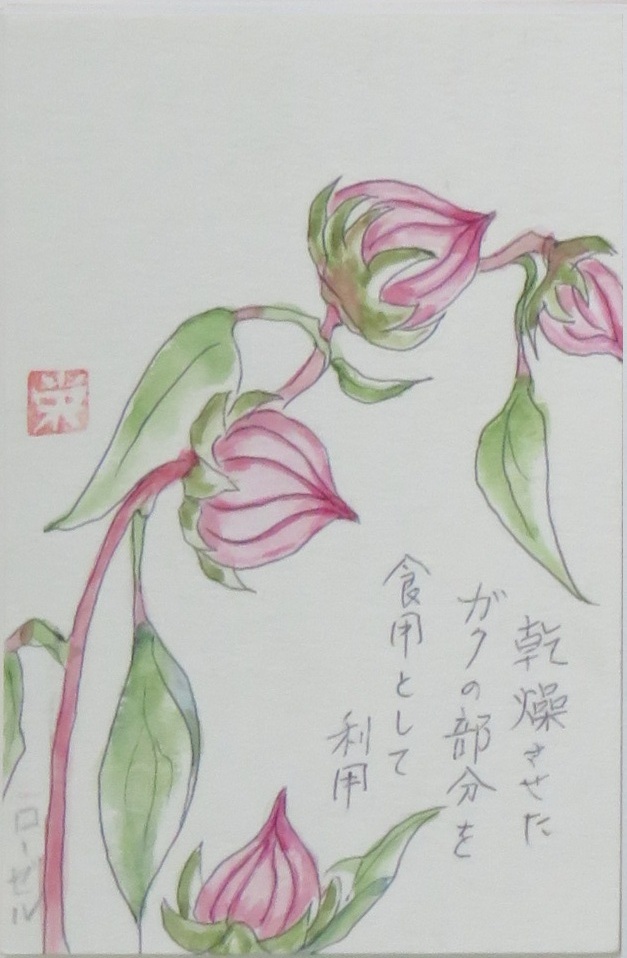 乾燥させた
ガクの部分を
食用として
利用
ローゼル
栄